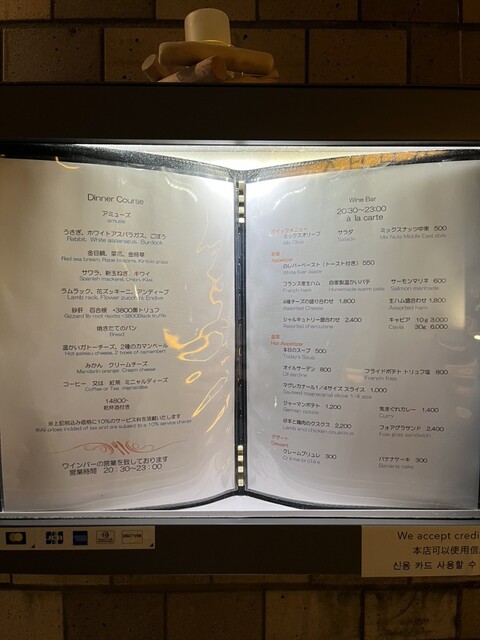 Dinner Course
アミューズ
amuse
うさぎ、ホワイトアスパラガス、ごぼう
Rabbit, White asparagus, Burdock
金目鯛、菜花、金時草
サワラ、新玉ねぎ、キウイ
Spanish mackerel, Onion, Kiwi
ラムラック、花ズッキーニ、アンディーブ
Lamb rack, Flower zucchini, Endive
砂肝 百合根 +3800黒トリュフ
焼きたてのパン
Bread
温かいガトーチーズ、2種のカマンベール
Hot gateau cheese, 2 types of camembert
みかん クリームチーズ
Mandarin orange, Cream cheese
コーヒー 又は 紅茶 ミニャルディーズ
Coffee or Tea, mignardise
14800~
乾杯酒付き
※上記税込み価格に10%のサービス料を頂戴いたします
※All prices included of tax and are subject to a 10% service charge
ワインバーの営業を致しております
営業時間 20:30~23:00
Wine Bar
20:30~23:00
à la carte
ミックスオリーブ サラダ ミックスナッツ中東 500
Mix Olive Salade Mix Nuts Middle East style
前菜
Appetizer
白レバーペースト(トースト付き) 550
White liver paste
フランス産生ハム 自家製豚かいパテ サーモンマリネ 600
French ham Homemade warm pate Salmon marinade
4種チーズの盛り合わせ 1,800 生ハム盛合わせ 1,800
Assorted Cheese Assorted ham
シャルキュトリー盛合わせ 2,400 キャビア 10g 3,000
Assorted charcuterie Cavia 30g 6,000
温菜
Hot Appetizer
本日のスープ 500
Today's Soup
オイルサーデン 800 フライドポテト トリュフ塩 800
Oil sardine French fries
マグレカナール1/4サイズ スライス 1,000
ジャーマンポテト 1,200 気まぐれカレー 1,400
German potato Curry
仔羊と鶏肉のクスクス 2,200 フォアグラサンド 2,400
Lamb and chicken couscous Foie gras sandwich
デザート
Dessert
クレームブリュレ 300 バナナケーキ 300
Crème brûlée Banana cake
We accept credi
本店可以使用信
신용 카드 사용할 수